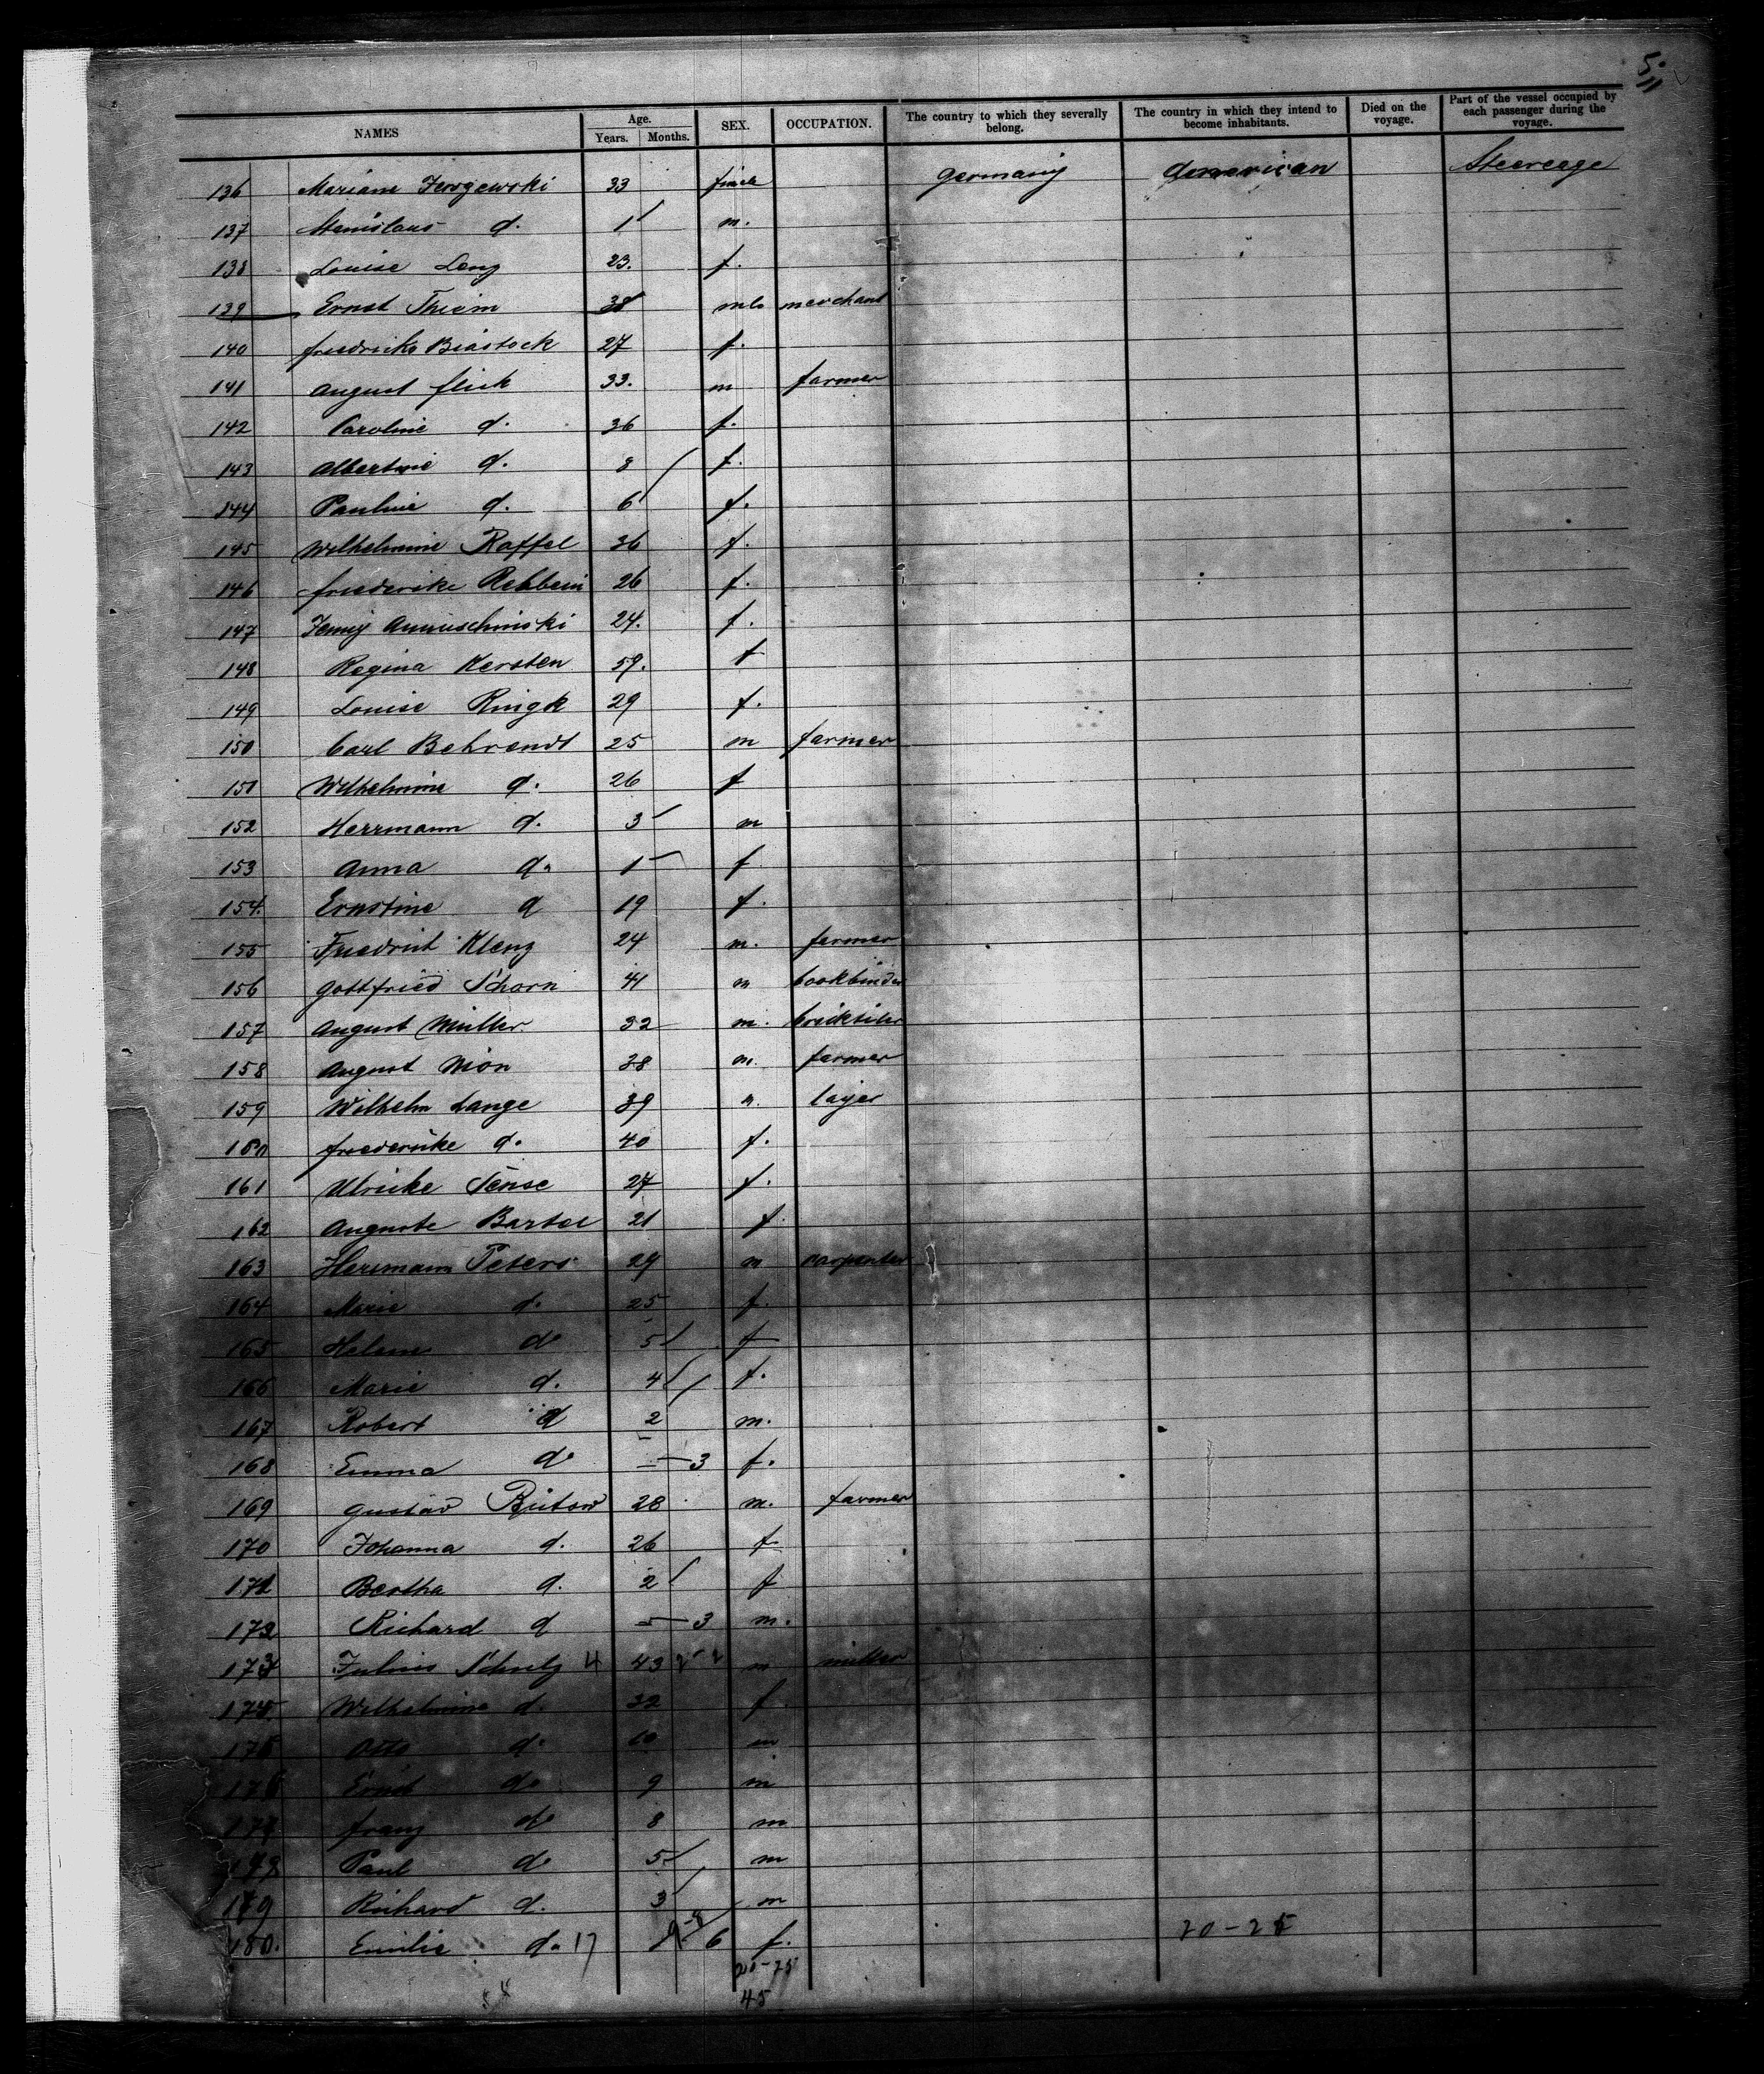 5.
NAMES Age. Years. Months. SEX. OCCUPATION. The country to which they severally belong. The country in which they intend to become inhabitants. Died on the voyage. Part of the vessel occupied by each passenger during the voyage.
136 Mariane 33 Germany American Steereage
137 Stanislaus d. 1 m.
138 Louise Lenz 23. f.
139 Ernst Thiem 38 mle merchant
140 Biastock 27 f.
141 August Flick 33. m farmer
142 Caroline d. 36 f.
143 Albertine d. 8 f.
144 Pauline d. 6 f.
145 Wilhelmine Raffel 36 f.
146 Frederike Rehbein 26 f.
147 Jenny 24. f.
148 Regina Kersten 59. f
149 Louise Ringk 29 f.
150 Carl Behrendt 25 m farmer
151 Wilhelmine d. 26 f
152 Herrmann d. 3 m
153 Anna do 1 f
154. Ernstine d 19 f.
155 Friedrich Klenz 24 m. farmer
156 Gottfried Schorn 41 m bookbinder
157 August Müller 32 m.
158 August 38 m. farmer
159 Wilhelm Lange 39 m.
160 Frederike d. 40 f.
161 Ulricke Sense 27 f.
162 Auguste Bartel 21 f.
163 Herrmann Peters 29 m carpenter
164 Marie d. 25 f.
165 Helene do 5 f
166 Marie d. 4 f.
167 Robert d 2 m.
168 Emma do — 3 f.
169 Gustav Bütow 28 m. farmer
170 Johanna d. 26 f
171 Bertha d. 2 f
172 Richard d — 3 m.
173 Julius Schulz 4 43 m miller
174 Wilhelmine d. 32 f
175 Otto d. 10 m
176 Ernst do 9 m
177 Franz do 8 m
178 Paul do 5 m
179 Richard d. 3 m
180. Emilie do 17 6 f. 20-25
20-25
45